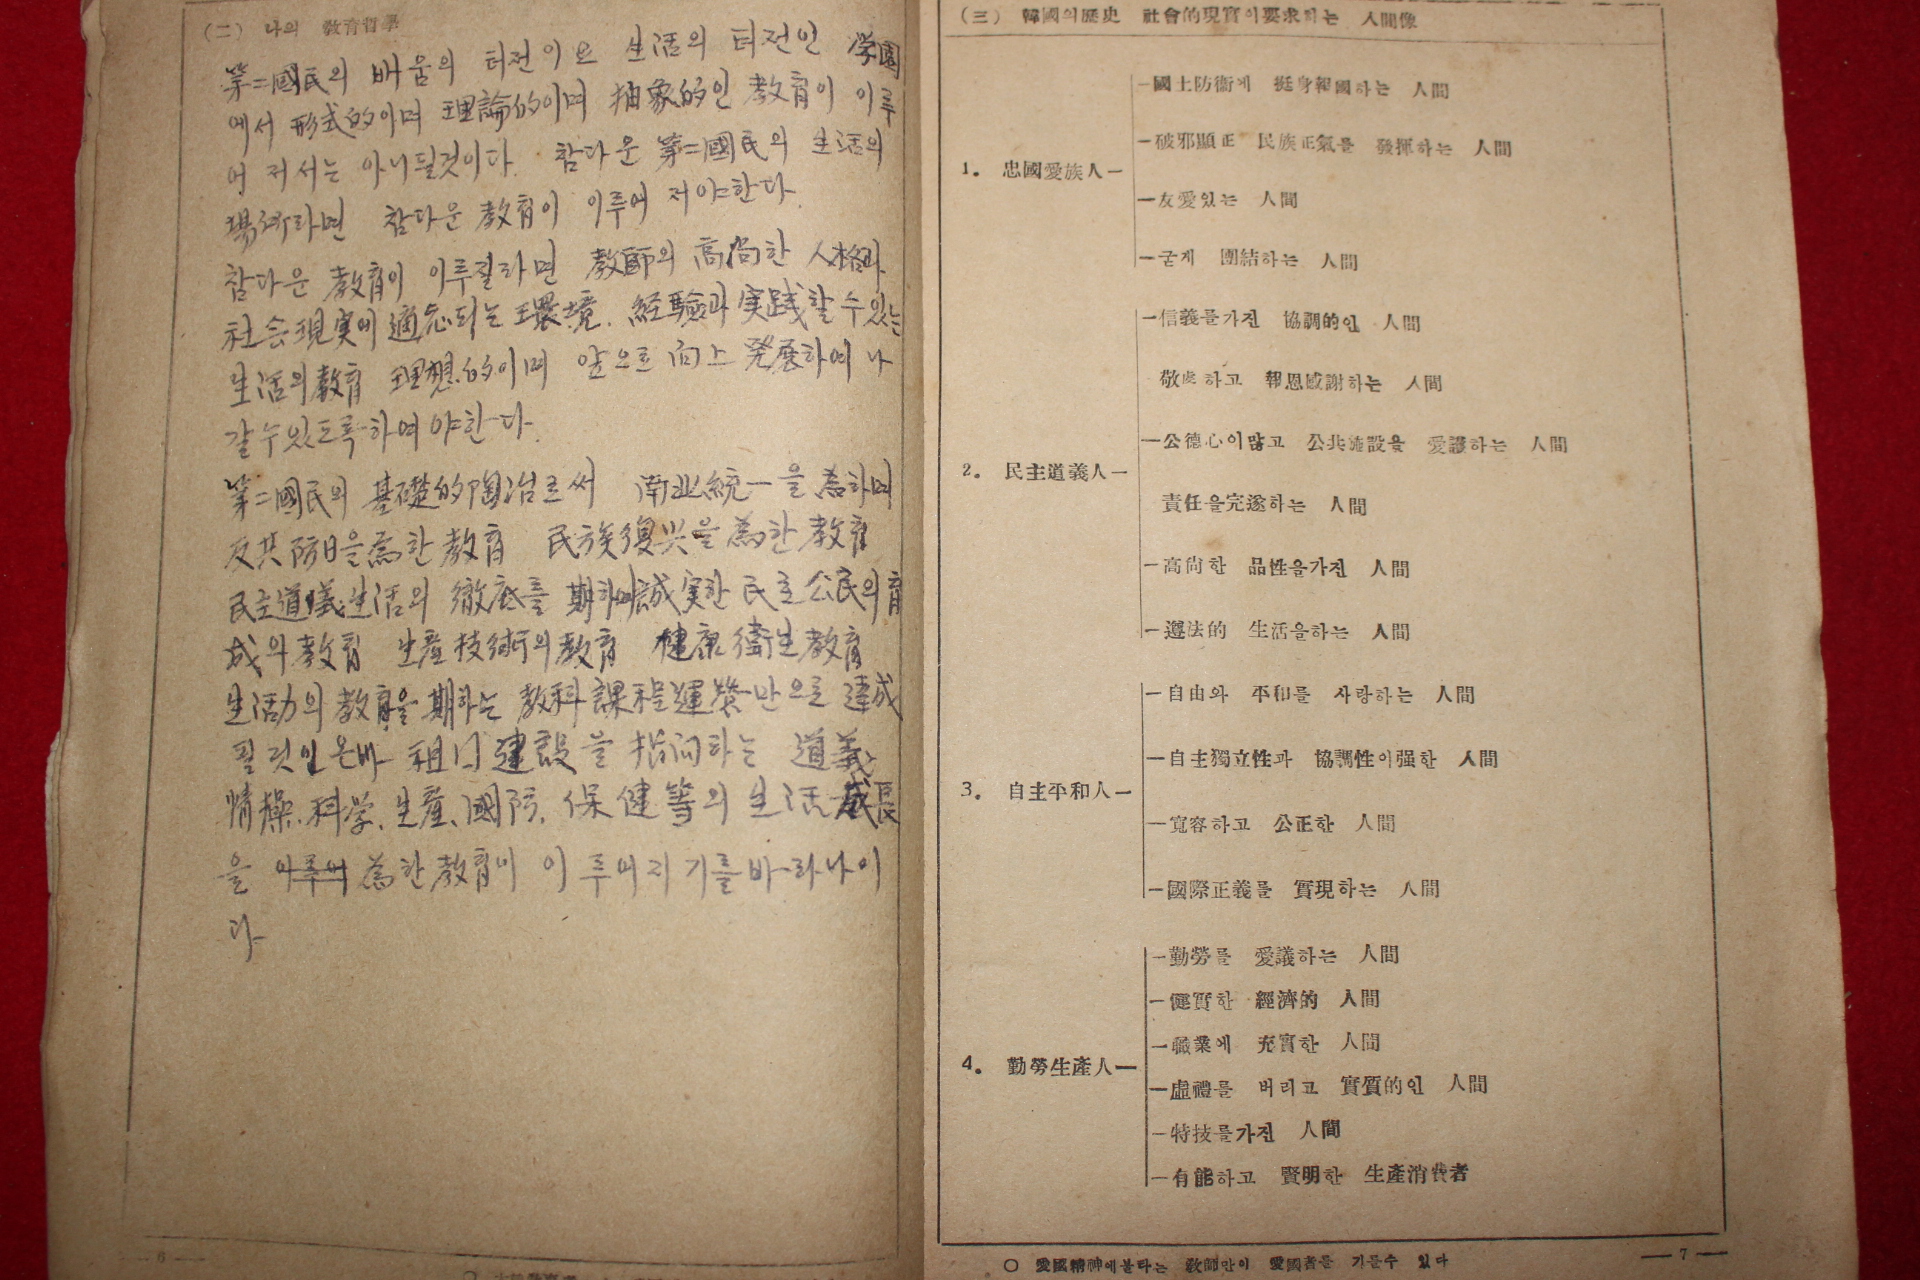 (二) 나의 敎育哲學
第二國民의 배움의 터전이요 生活의 터전인 学園
에서 形式的이며 理論的이며 抽象的인 教育이 이루
어 저서는 아니될것이다. 참다운 第二國民의 生活의
場所라면 참다운 教育이 이루어 저야한다.
참다운 教育이 이루질라면 教師의 高尙한 人格과
社会現実에 適応되는 環境. 経驗과 実践할수있는
生活의教育 理想的이며 앞으로 向上 発展하여 나
갈수있도록하여야한다.
第二國民의 基礎的陶冶로써 南北統一을 爲하며
反共防日을爲한教育 民族復兴을爲한教育
民主道義生活의 徹底를 期하며誠実한民主公民의育
成의教育 生産技術의教育 健康衛生教育
生活力의教育을期하는 教科課程運營만으로 達成
될것인온바 祖国建設을 指向하는 道義
情操.科学.生産.國防.保健等의 生活成長
을 爲한教育이 이루어지기를바라나이
다
— 6 —
(三) 韓國의歷史 社會的現實이要求하는 人間像
1. 忠國愛族人
國土防衞에 挺身報國하는 人間
破邪顯正 民族正氣를 發揮하는 人間
友愛있는 人間
굳게 團結하는 人間
2. 民主道義人
信義를가진 協調的인 人間
敬虔하고 報恩感謝하는 人間
公德心이많고 公共施設을 愛護하는 人間
責任을完遂하는 人間
高尙한 品性을가진 人間
遵法的 生活을하는 人間
3. 自主平和人
自由와 平和를 사랑하는 人間
自主獨立性과 協調性이强한 人間
寬容하고 公正한 人間
國際正義를 實現하는 人間
4. 勤勞生產人
勤勞를 愛議하는 人間
健實한 經濟的 人間
職業에 充實한 人間
虛禮를 버리고 實質的인 人間
特技를가진 人間
有能하고 賢明한 生產消費者
○ 愛國精神에불타는 敎師만이 愛國者를 기를수 있다
— 7 —